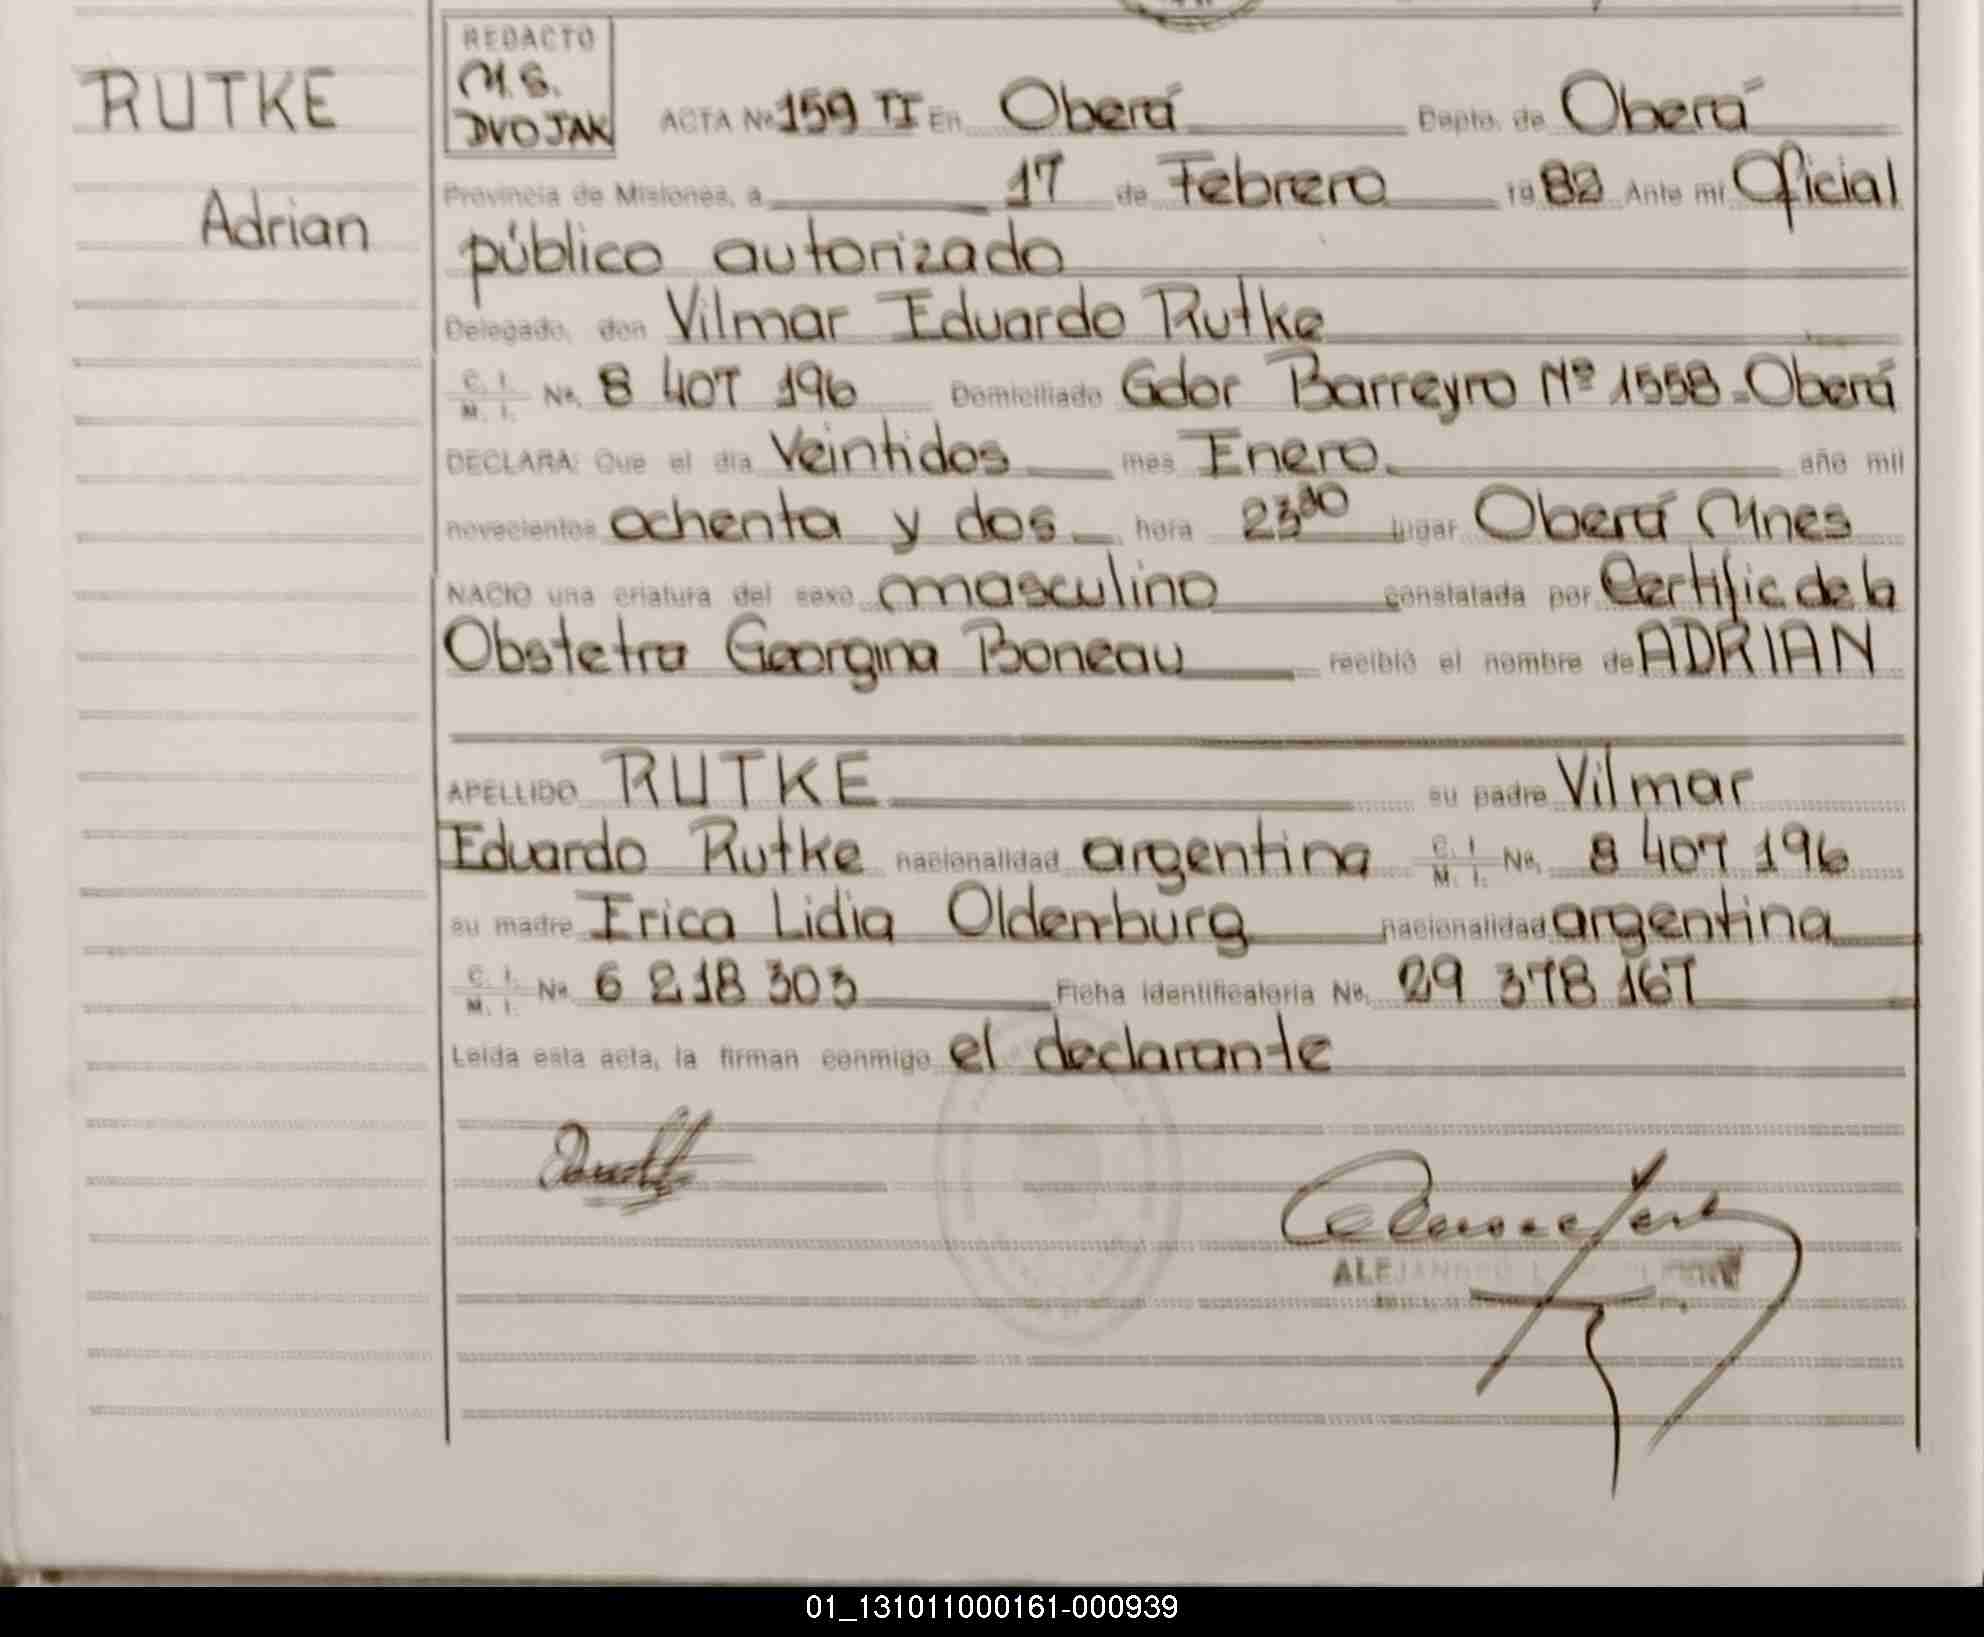 REDACTO
M. S.
DVOJAK
RUTKE
Adrian
ACTA Nº 159 TI En Oberá Depto. de Oberá
Provincia de Misiones, a 17 de Febrero 1982 Ante mí Oficial
público autorizado
Delegado, don Vilmar Eduardo Rutke
C. I. M. I. Nº. 8 407 196 Domiciliado Gdor Barreyro Nº 1558 - Oberá
DECLARA: Que el día Veintidos mes Enero año mil
novecientos ochenta y dos hora 23⁰⁰ lugar Oberá Mnes
NACIO una criatura del sexo masculino constatada por Certific de la
Obstetra Georgina Boneau recibió el nombre de ADRIAN
APELLIDO RUTKE su padre Vilmar
Eduardo Rutke nacionalidad argentina C. I. M. I. Nº. 8 407 196
su madre Erica Lidia Oldemburg nacionalidad argentina
C. I. M. I. Nº. 6 218 303 Ficha identificatoria Nº. 29 378 167
Leída esta acta, la firman conmigo el declarante
01_131011000161-000939